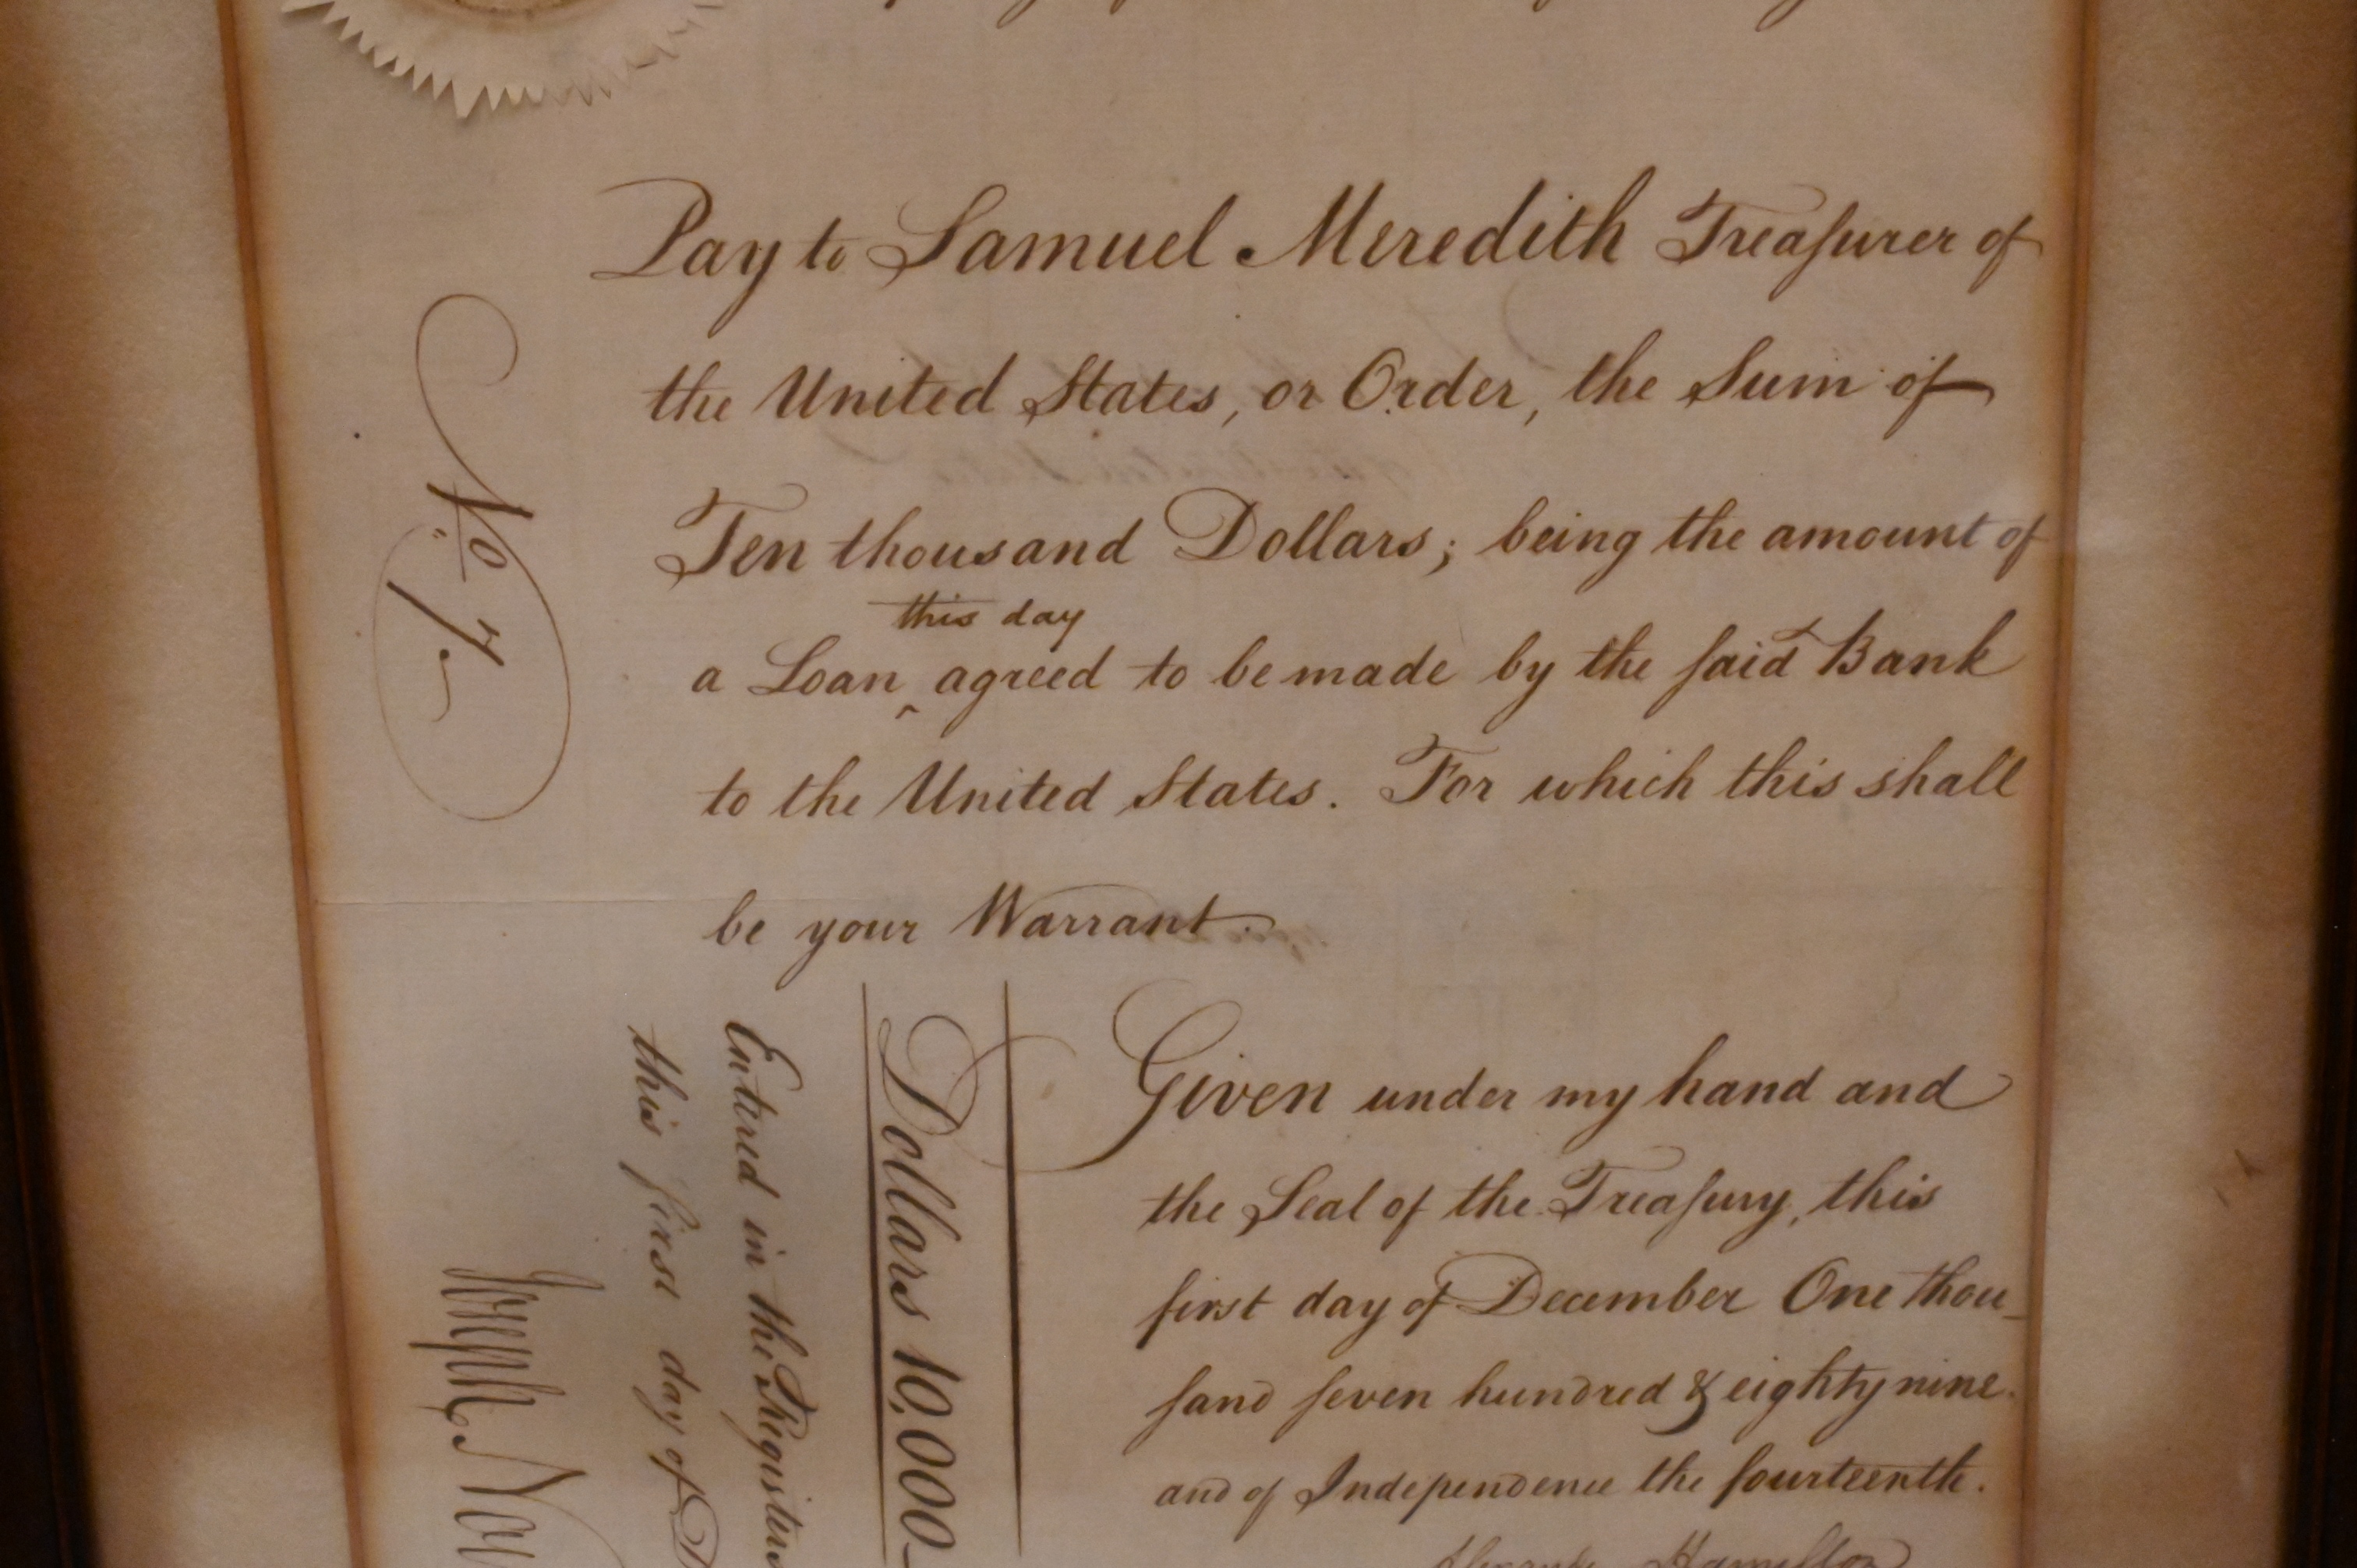 Pay to Samuel Meredith Treaſurer of
the United States, or Order, the Sum of
Ten thousand Dollars; being the amount of
this day
a Loan ‸ agreed to be made by the ſaid Bank
to the United States. For which this shall
be your Warrant.
Given under my hand and
the Seal of the Treaſury, this
first day of December One thou-
ſand ſeven hundred & eighty nine.
and of Independence the fourteenth.
Hamilton
No. 7
Dollars 10,000
Entered in the Registers
this first day of
Joseph